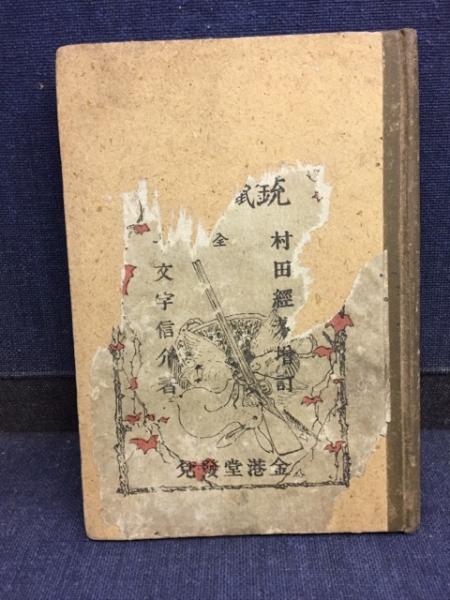 銃
村田經芳増訂
全
文字信介著
金港堂發兌